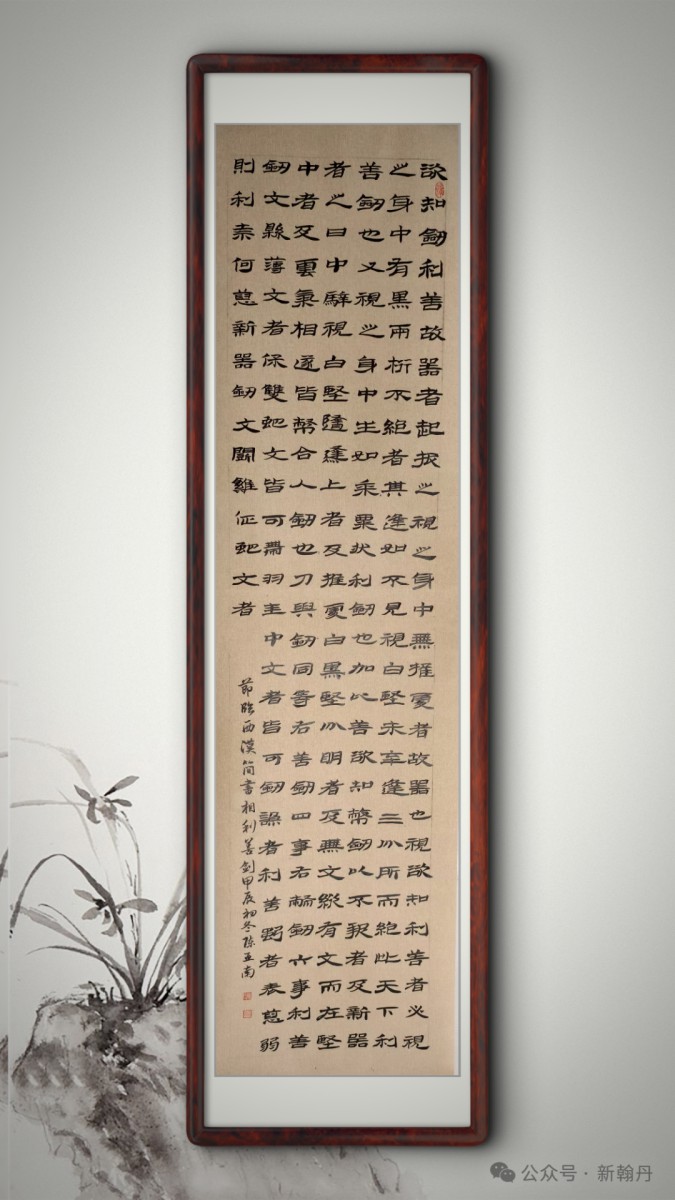 欲知劒利善故器者起拔之視之身中無推處者故器也視欲知利善者必視
之身中有黑兩桁不絕者其逢如不見視白堅未至逢三分所而絕此天下利
善劒也又視之身中生如黍粟狀利劒也加以善欲知幣劒以不報者及新器
者之日中騂視白堅隨逢上者及推處白黑堅分明者及無文縱有文而在堅
中者及雲氣相逐皆幣合人劒也刀與劒同等右善劒四事右幣劒六事利善
劒文縣薄文者保雙蛇文皆可帶羽圭中文者皆可劒謼者利善者表惡弱
則利奈何惡新器劒文鬭雞征蛇文者
節臨西漢簡書相利善劍甲辰初冬陳亚南
公众号·新翰丹